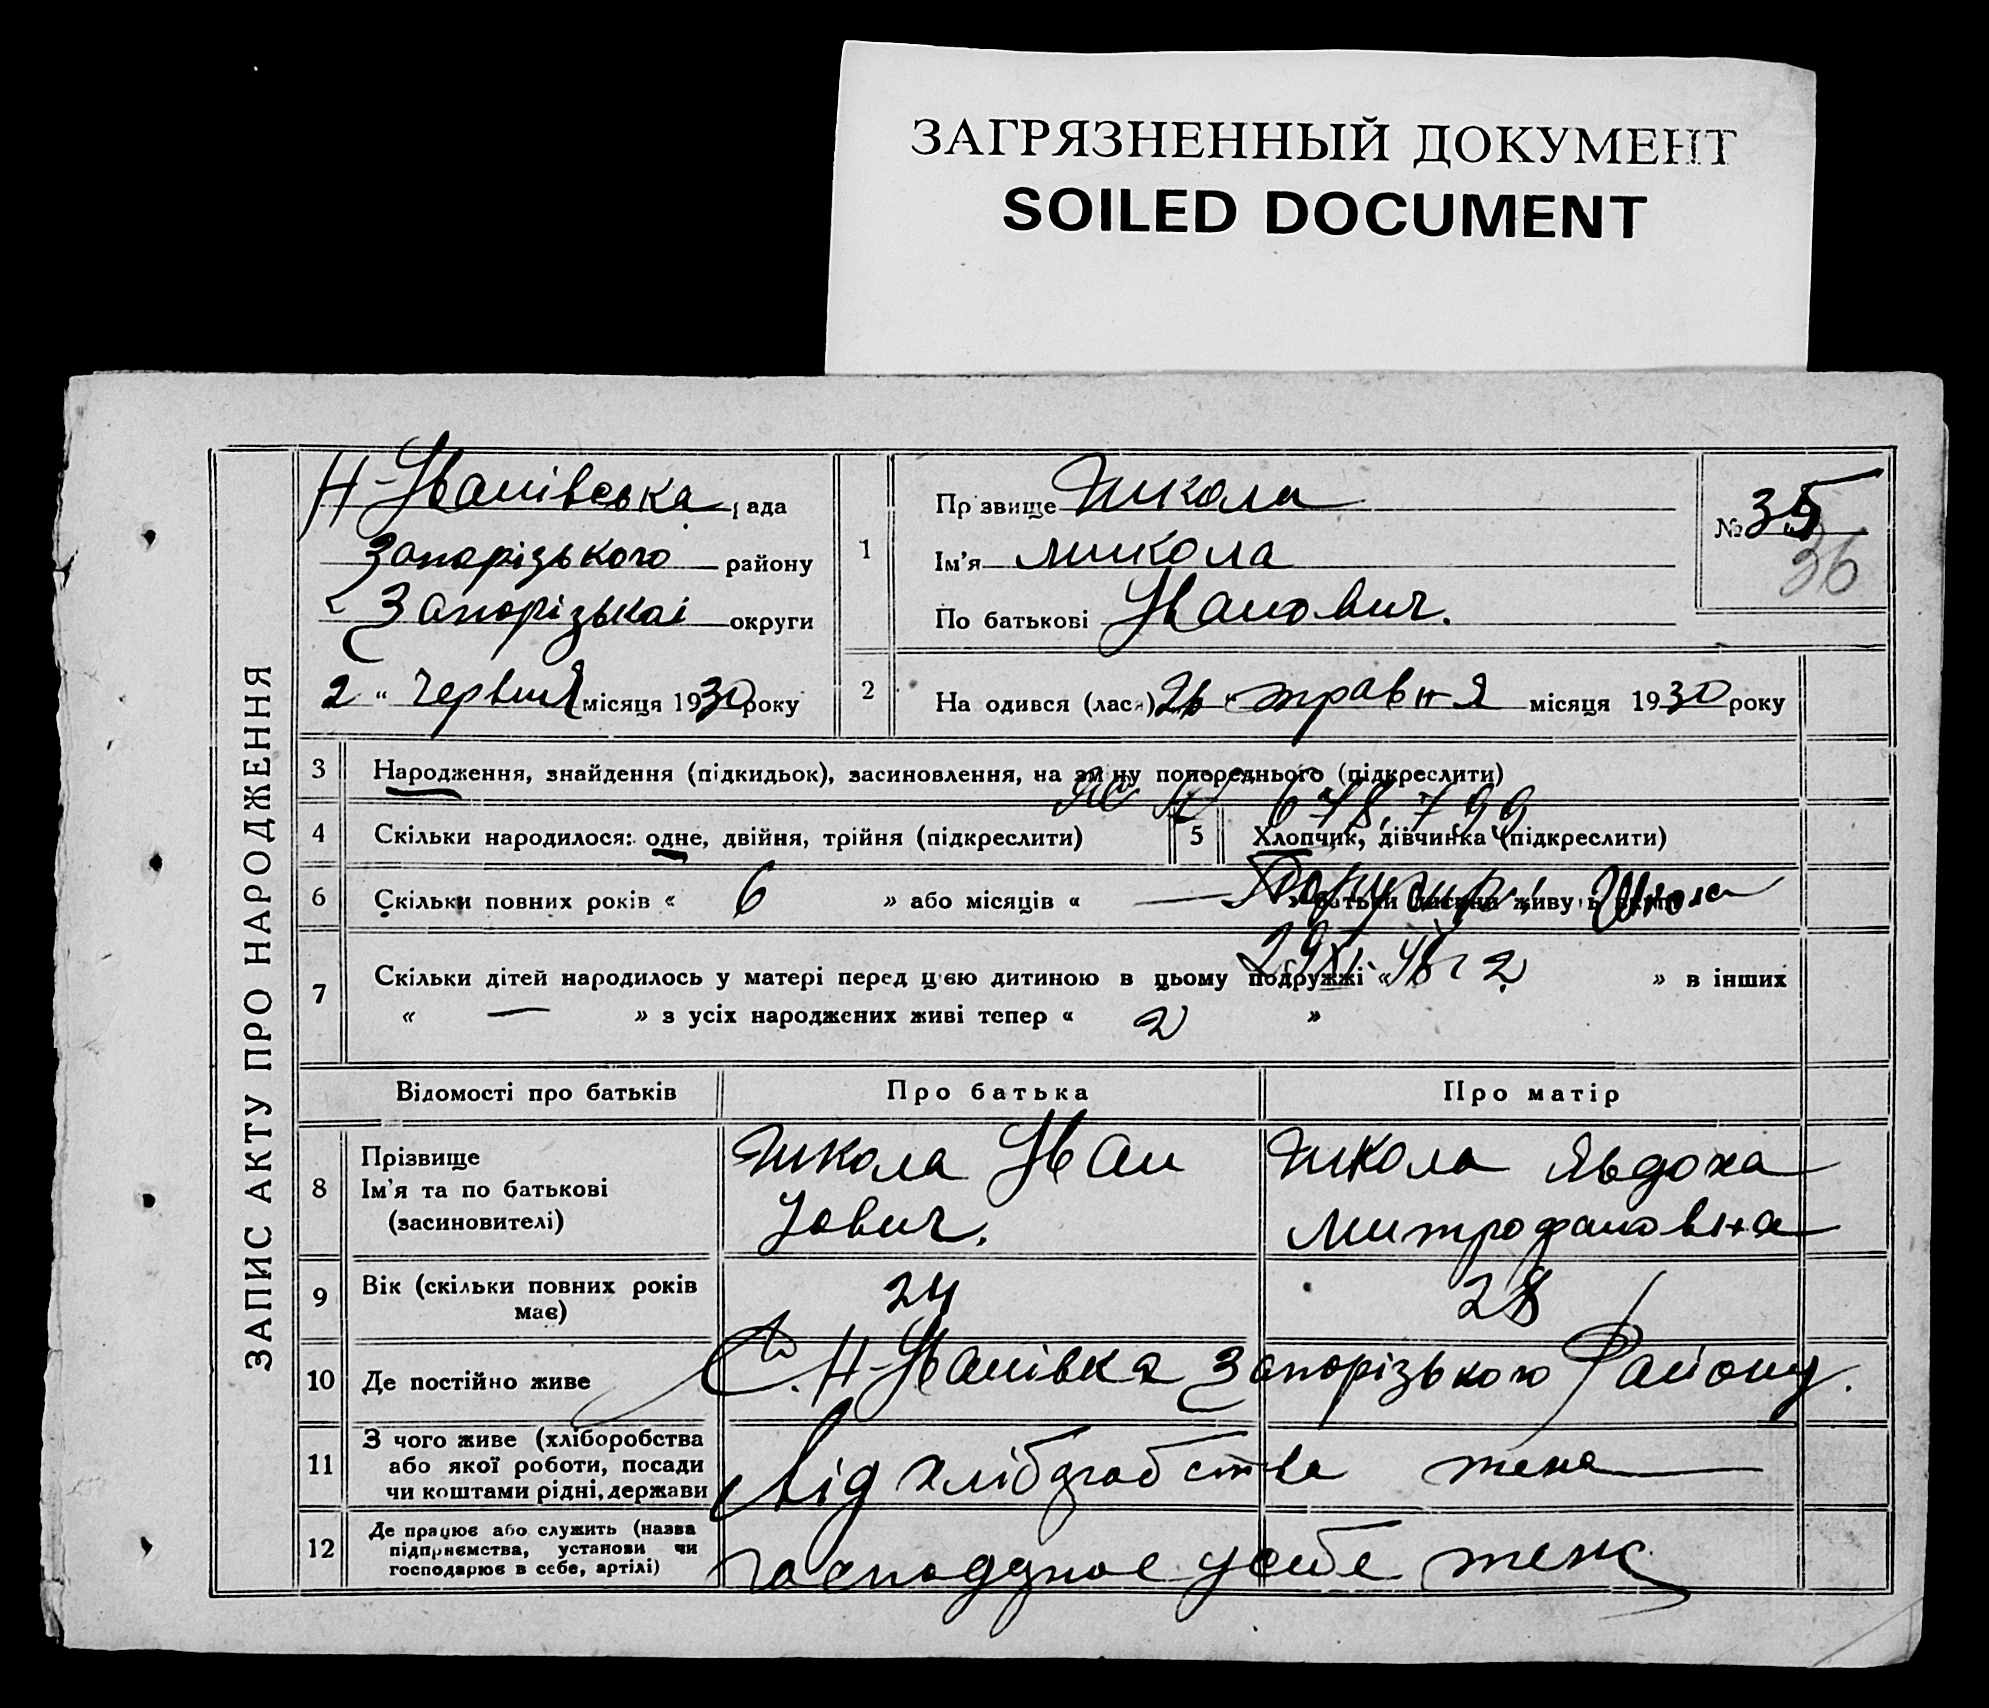 ЗАГРЯЗНЕННЫЙ ДОКУМЕНТ
SOILED DOCUMENT
ЗАПИС АКТУ ПРО НАРОДЖЕННЯ
Н-Іванівська рада
Запорізького району
Запорізькоі округи
2 " червня місяця 1930 року
1
Прізвище Школа
Ім'я Микола
По батькові Іванович.
№ 35
36
2 На одився (лася) 26 " травня місяця 1930 року
3 Народження, знайдення (підкидьок), засиновлення, на зміну попереднього (підкреслити)
678,799
4 Скільки народилося: одне, двійня, трійня (підкреслити) 5 Хлопчик, дівчинка (підкреслити)
6 Скільки повних років « 6 » або місяців « —
Школа
7 Скільки дітей народилось у матері перед цією дитиною в цьому подружжі « 2 » в інших
« — » з усіх народжених живі тепер « 2 »
Відомості про батьків Про батька Про матір
8 Прізвище
Ім'я та по батькові
(засиновителі)
Школа Іван
Школа Явдоха
Митрофановна
9 Вік (скільки повних років
має)
24 28
10 Де постійно живе С. Н-Іванівка Запорізького Району.
11 З чого живе (хліборобства
або якої роботи, посади
чи коштами рідні, держави
від хліборобства
12 Де працює або служить (назва
підприємства, установи чи
господарює в себе, артілі)